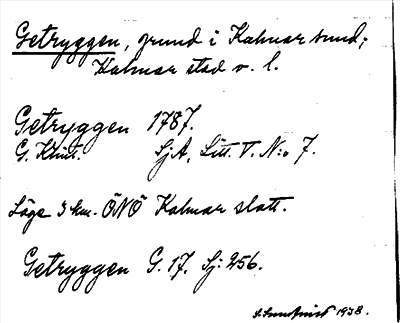 Getryggen, grund i Kalmar sund;
Kalmar stad o. l.
Getryggen 1787.
G. Klint. SjA, Litt. T. N:o 7.
Läge 3 km. ÖNÖ Kalmar slott.
Getryggen G. 17. Sj: 256.
1938.